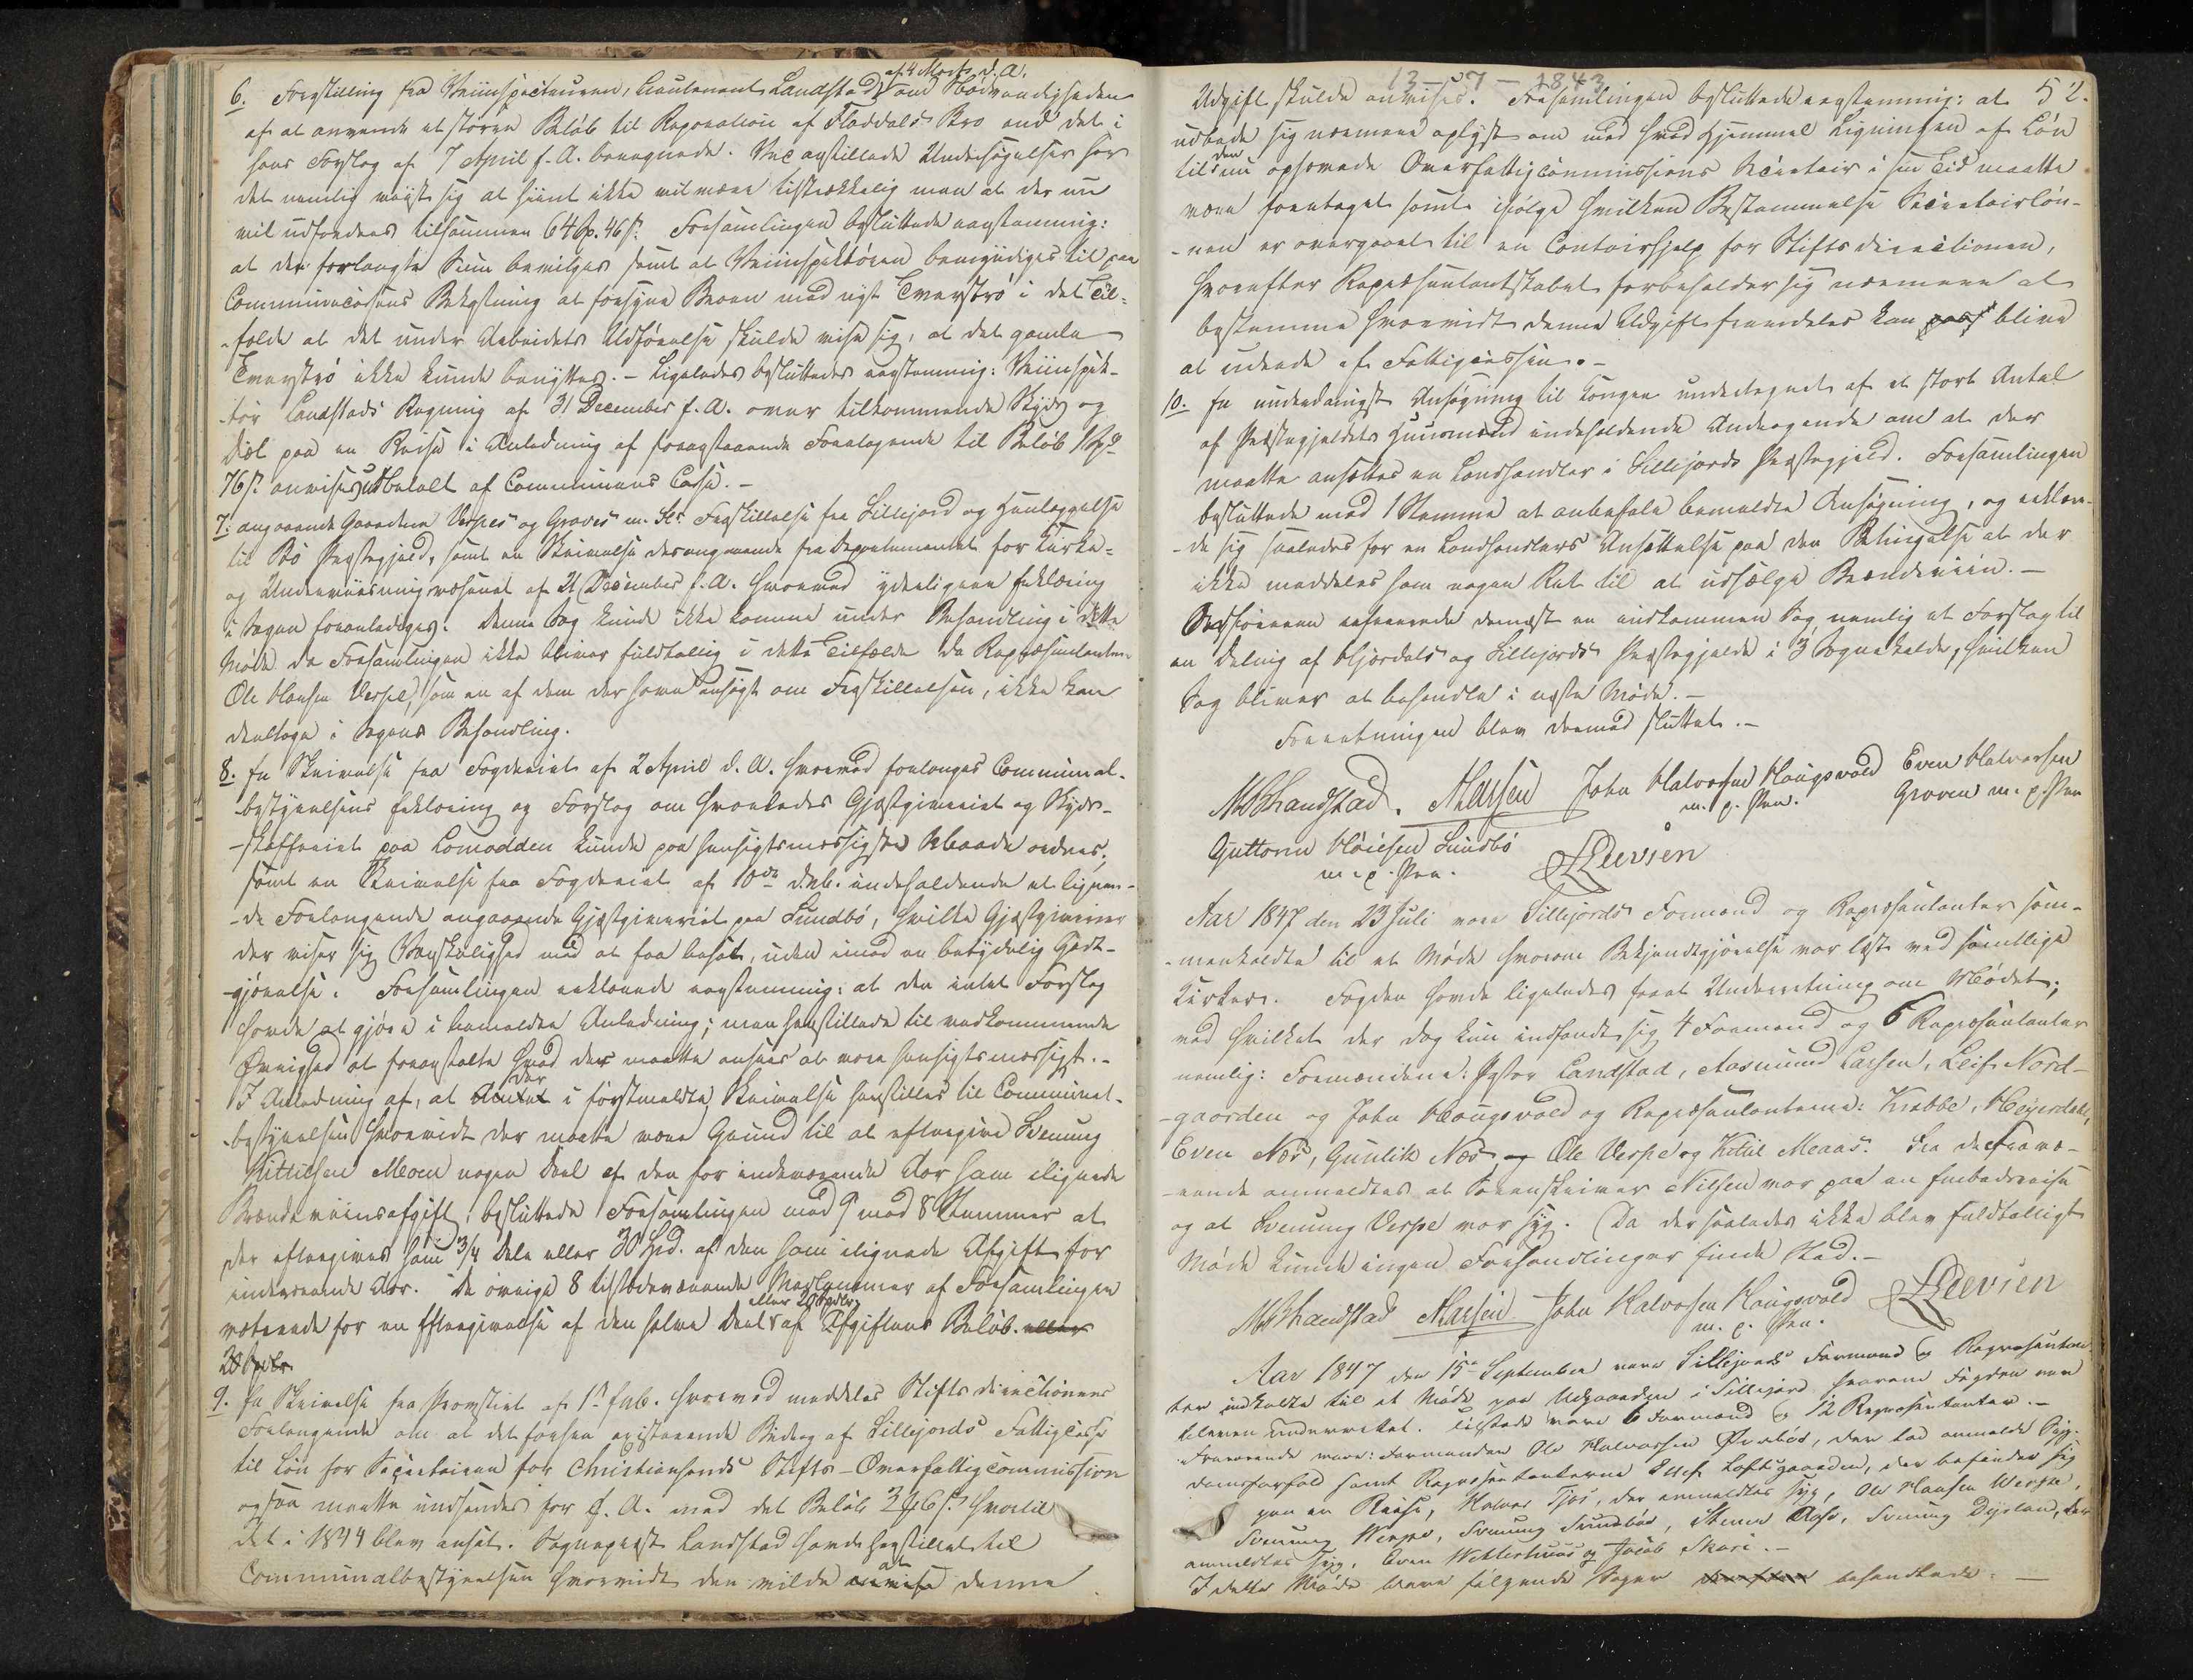 af 4 Marts d. A.
6. Forestilling fra Veiinspecteuren, Lieutenant Landstad, om Nødvendigheden
af at anvende et større Beløb til Reparation af Floddals Bro end det i
hans Forslag af 7 April f. A. beregnede. Ved anstillede Undersøgelser har
det nemlig viist sig at hiint ikke vil være tilstrækkelig men at der nu
vil udfordres tilsammen 64 Spd. 46 s. Forsamlingen besluttede eenstemmig:
at den forlangte Sum bevilges samt at Veiinspektøren bemyndiges til paa
Communecassens Bekostning at forsyne Broen med nyt Tverstrø i det Til-
fælde at det under Arbeidets Udførelse skulde vise sig, at det gamle
Tverstrø ikke kunde benyttes. – Ligeledes besluttedes eenstemmig: Veiinspek-
tør Landstads Regning af 31 December f. A. over tilkommende Skyds og
Diæt paa en Reise i Anledning af foranstaaende Foretagende til Beløb 1 Spd
76 s. anvises udbetalt af Communens Casse. –
7. angaaende Gaardene Verpes og Groves m. fl. Fraskillelse fra Sillejord og Henlæggelse
til Bø Præstegjeld, samt en Skrivelse desangaaende fra Departementet for Kirke-
og Underviisningsvæsenet af 21 December f. A. hvorved yderligere Erklæring
i Sagen foranlediges. Denne Sag kunde ikke komme under Behandling i dette
Møde da Forsamlingen ikke bliver fuldtallig i dette Tilfælde da Repræsentanten
Ole Hansen Verpe, som en af dem der have ansøgt om Fraskillelsen, ikke kan
deeltage i Sagens Behandling.
8. En Skrivelse fra Fogderiet af 2 April d. A. hvorved forlanges Communal-
bestyrelsens Erklæring og Forslag om hvorledes Gjæstgiveriet og Skyds-
skafferiet paa Lomodden kunde paa hensigtsmæssigste Maade ordnes;
samt en Skrivelse fra Fogderiet af 10de d. M. indeholdende et lignen-
de Forlangende angaaende Gjæstgiveriet paa Sundbø, hvilke Gjæstgiverier
der viser sig Vanskelighed ved at faa besat, uden imod en betydelig Godt-
gjørelse. Forsamlingen erklærede eenstemmig: at den intet Forslag
havde at gjøre i bemeldte Anledning; men henstillede til vedkommende
Øvrighed at foranstalte hvad der maatte ansees at være hensigtsmæssigt. –
I Anledning af, at der i førstmeldte Skrivelse henstilles til Communal-
bestyrelsen hvorvidt der maatte være Grund til at eftergive Svenung
Kittilsen Moen nogen Deel af den for indeværende Aar ham ilignede
Brændeviinsafgift, besluttede Forsamlingen med 9 mod 8 Stemmer at
der eftergives ham 3/4 Dele eller 30 Spd. af den ham ilignede Afgift for
indeværende Aar. De øvrige 8 tilstedeværende Medlemmer af Forsamlingen
eller 20 Spdlr
voterede for en Eftergivelse af den halve Deel af Afgiftens Beløb. eller
20 Spdlr
9. En Skrivelse fra Provstiet af 1ste Feb. hvorved meddeles Stiftsdirectionens
Forlangende om at det forhen existerende Bidrag af Sillejords Fattigcasse
til Løn for Secretairen for Christiansands Stifts-Overfattigcommission
ogsaa maatte indsendes for f. A. med det Beløb hvortil
det i 1844 blev ansat. Sognepræst Landstad havde henstillet til
Communalbestyrelsen hvorvidt den vilde at denne
13-7-1843
52.
Udgift skulde anvises. Forsamlingen besluttede eenstemmig: at
udbede sig nærmere oplyst om med hvad Hjemmel Ligningen af Løn
til den nu ophævede Overfattigcommissions Secretair i sin Tid maatte
være foretaget samt ifølge hvilken Bestemmelse Secretairløn-
nen er overgaaet til en Contoirhjelp for Stiftsdirectionen,
hvorefter Repræsentantskabet forbeholder sig nærmere at
bestemme hvorvidt denne Udgift fremdeles kan blive
at udrede af Fattigcassen. –
10. En underdanigst Ansøgning til Kongen undertegnet af et stort Antal
af Præstegjeldets Huusmænd indeholdende Andragende om at der
maatte ansættes en Landhandler i Sillejords Præstegjeld. Forsamlingen
besluttede med 1 Stemme at anbefale bemeldte Ansøgning, og erklære-
de sig saaledes for en Landhandlers Ansættelse paa den Betingelse at der
ikke meddeles ham nogen Ret til at udsælge Brændeviin. –
Ordføreren refererede dernæst en indkommen Sag nemlig et Forslag til
en Deling af Hjerdals og Sillejords Præstegjelde i 3 Sognekalde, hvilken
Sag bliver at behandle i næste Møde. –
Forretningen blev dermed sluttet. –
MBLandstad. ALarsen John Halvorsen Haugsvold Even Halvorsen
m. p. Pen. Groven m. p. Pen
Guttorm Høiesen Sundbø
m. p. Pen.
Aar 1847 den 23 Juli vare Sillejords Formænd og Repræsentanter sam-
menkaldte til et Møde hvorom Bekjendtgjørelse var læst ved samtlige
Kirker. Fogden havde ligeledes faaet Underretning om Mødet;
ved hvilket der dog kun indfandt sig 4 Formænd og 6 Repræsentanter
nemlig: Formændene: Pastor Landstad, Aasmund Larsen, Leif Nord-
gaarden og John Haugsvold og Repræsentanterne: Krabbe, Heyerdahl,
Even Næs, Gunlik Næs, og Ole Verpe og Kittil Meaas. Fra de Fravæ-
rende anmeldtes at Sorenskriver Nilsen var paa en Embedsreise
og at Svenung Verpe var syg. Da der saaledes ikke blev fuldtalligt
Møde kunde ingen Forhandlinger finde Sted. –
MBLandstad ALarsen John Halvorsen Haugsvold
m. p. Pen.
Aar 1847 den 15de September vare Sillejords Formænd og Repræsentan-
ter indkaldte til et Møde paa Udgaarden i Sillejord hvorom Fogden var
bleven underrettet. Tilstede vare 6 Formænd og 12 Repræsentanter. –
Fraværende vare: Formanden Ole Halvorsen der lod anmelde Syg-
domsforfald samt Repræsentanterne Leif Loftsgaarden, der befinder sig
paa en Reise, Halvor Tjøs, der anmeldtes syg, Ole Hansen Werpe,
Svenung Werpe, Svenung Sundbø, Steiner Aase, Svenung Dyrland, der
anmeldtes syg, Even og Jacob Skori. –
I dette Møde bleve følgende Sager behandlede: –